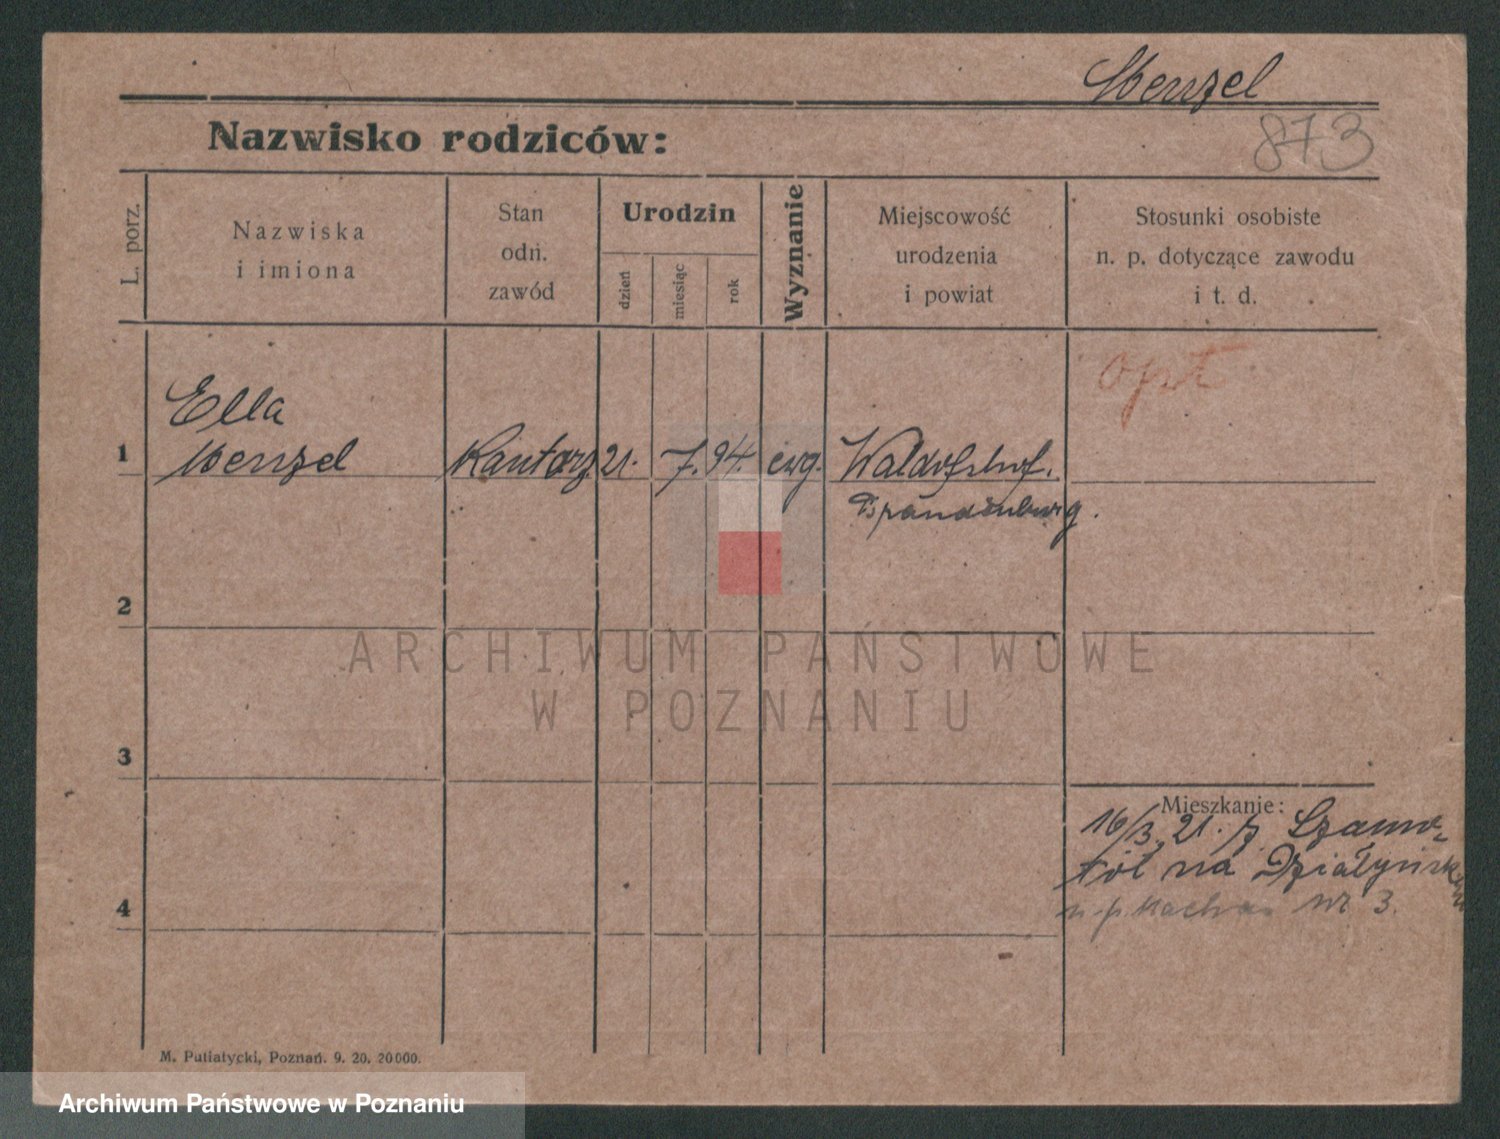 Menzel
873
Nazwisko rodziców:
L. porz.
Nazwiska
i imiona
Stan
odn.
zawód
Urodzin
dzień
miesiąc
rok
Wyznanie
Miejscowość
urodzenia
i powiat
Stosunki osobiste
n. p. dotyczące zawodu
i t. d.
opt
Ella
1 Menzel Kantorz. 21. 7. 94. ewg.
Brandenburg.
2
ARCHIWUM PAŃSTWOWE
W POZNANIU
3
Mieszkanie:
16/3. 21. z Szamo-
tuł na Działyńsk
nr 3.
4
M. Putiatycki, Poznań. 9. 20. 20000.
Archiwum Państwowe w Poznaniu